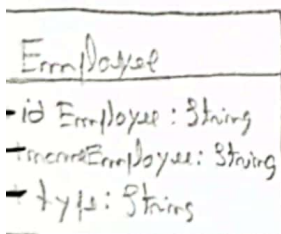 Employee
-id Employee: String
+nameEmployee: String
- type: String